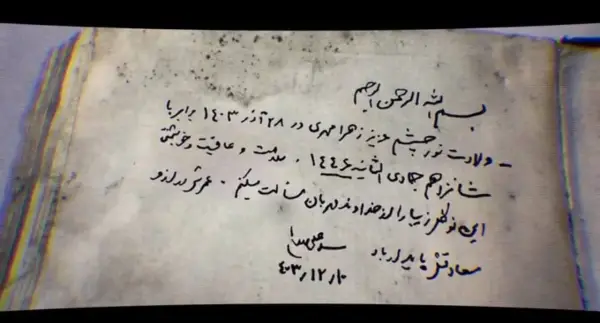 بسم الله الرحمن الرحیم
- ولادت نور چشم عزیز زهرا مهدی در ۲۸ آذر ۱۴۰۳ برابر با
شانزدهم جمادی الثانیه ۱۴۴۶. سلامت و عاقبت و خوشبختی
این نوگل زیبا را از خداوند مهربان مسئلت میکنم. عمرش دراز و
سعادتش پایدار باد
سید علی
۴۰۳/۱۲/۱۰